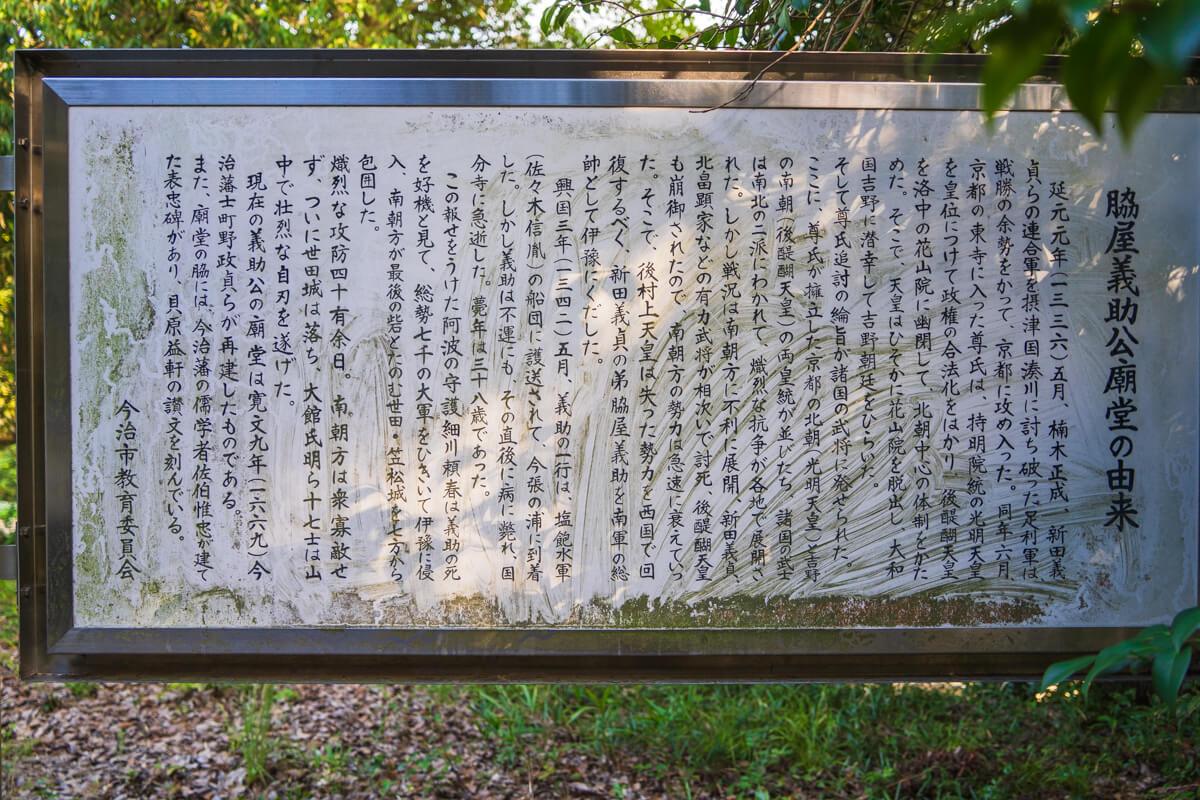 脇屋義助公廟堂の由来
延元元年(一三三六)五月、楠木正成、新田義
貞らの連合軍を摂津国湊川に討ち破った足利軍は
戦勝の余勢をかって、京都に攻め入った。同年六月
京都の東寺に入った尊氏は、持明院統の光明天皇
を皇位につけて政権の合法化をはかり、後醍醐天皇
を洛中の花山院に幽閉して、北朝中心の体制をかた
めた。そこで、天皇はひそかに花山院を脱出し、大和
国吉野に潜幸して吉野朝廷をひらいた。
そして尊氏追討の綸旨が諸国の武将に発せられた。
ここに、尊氏が擁立した京都の北朝(光明天皇)吉野
の南朝(後醍醐天皇)の両皇統が並びたち、諸国の武士
は南北の二派にわかれて、熾烈な抗争が各地で展開さ
れた。しかし戦況は南朝方に不利に展開、新田義貞、
北畠顕家などの有力武将が相次いで討死、後醍醐天皇
も崩御されたので、南朝方の勢力は急速に衰えていっ
た。そこで、後村上天皇は失った勢力を西国で回
復するべく、新田義貞の弟脇屋義助を南軍の総
帥として伊豫にくだした。
興国三年(一三四二)五月、義助の一行は、塩飽水軍
(佐々木信胤)の船団に護送されて、今張の浦に到着
した。しかし義助は不運にも、その直後に病に斃れ、国
分寺に急逝した。薨年は三十八歳であった。
この報せをうけた阿波の守護細川頼春は義助の死
を好機と見て、総勢七千の大軍をひきいて伊豫に侵
入、南朝方が最後の砦とたのむ世田・笠松城を七方から
包囲した。
熾烈な攻防四十有余日。南朝方は衆寡敵せ
ず、ついに世田城は落ち、大館氏明ら十七士は山
中で壮烈な自刃を遂げた。
現在の義助公の廟堂は寛文九年(一六六九)今
治藩士町野政貞らが再建したものである。
また、廟堂の脇には、今治藩の儒学者佐伯惟忠が建て
た表忠碑があり、貝原益軒の讃文を刻んでいる。
今治市教育委員会